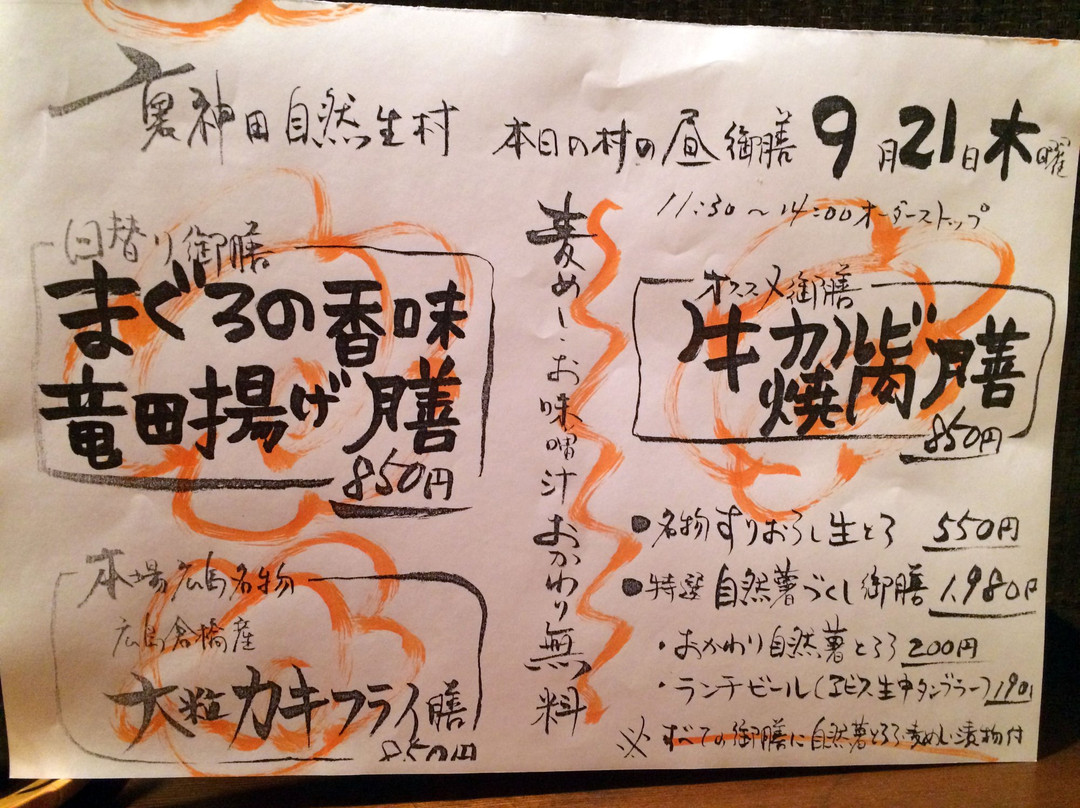 裏神田自然生村
本日の村の昼御膳 9月21日木曜
11:30〜14:00オーダーストップ
日替り御膳
まぐろの香味
竜田揚げ膳
850円
本場広島名物
広島倉橋産
大粒カキフライ膳
850円
麦めし・お味噌汁おかわり無料
オススメ御膳
牛カルビ
焼肉膳
850円
●名物すりおろし生とろ 550円
●特選自然薯づくし御膳 1,980円
・おかわり自然薯とろろ 200円
・ランチビール(ヱビス生中タンブラー)190
※すべての御膳に自然薯とろろ麦めし漬物付